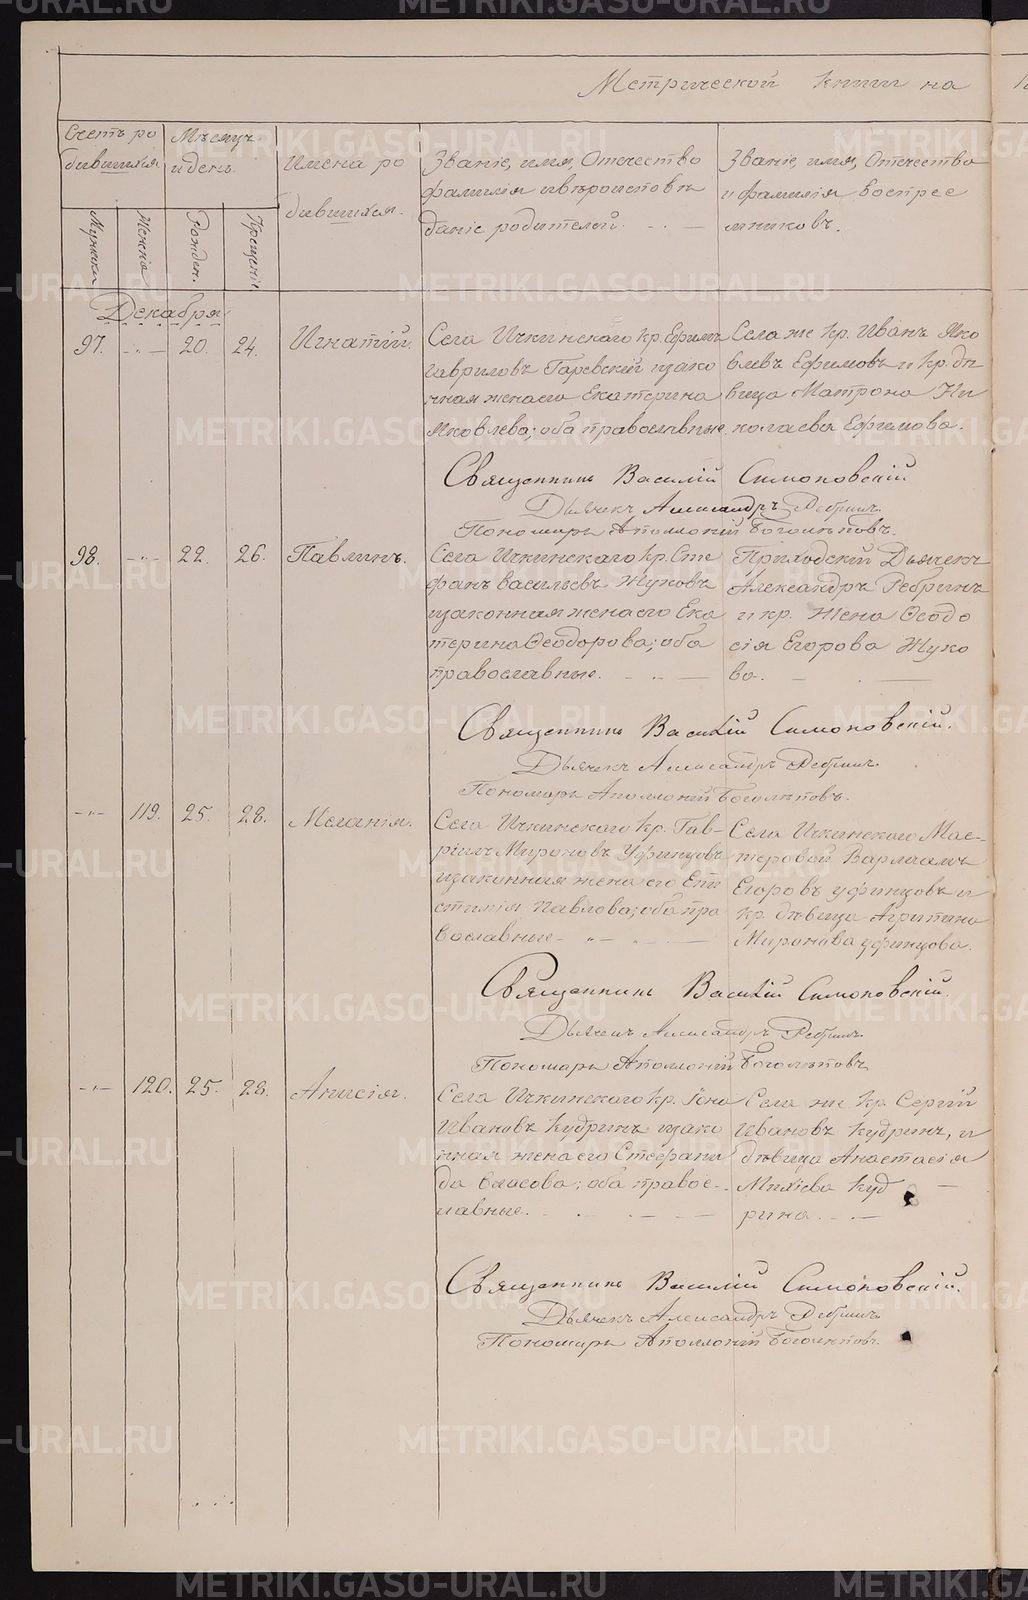 Метрической книги на
Счетъ ро
дившихся
Мѣсяцъ
и день.
Имена ро
дившихся.
Званіе, имя, Отчество
фамилія и вѣроисповѣ
даніе родителей.
Званіе, имя, Отчество
и фамилія воспрее
мниковъ.
Мужска
Женска
Рожден.
Крещеніе
Декабря
97. 20. 24. Игнатій.
Села Ичкинскаго кр. Ефимъ
Гавриловъ Гаревскій и зако
нная жена его Екатерина
Яковлева; оба православные
Села же кр. Иванъ Яко
влевъ Ефимовъ и кр. дѣ
вица Матрона Ни
колаева Ефимова.
Священникъ Василій Симоновскій
Дьячекъ Александръ Ребринъ.
Пономарь Аполлоній Боголѣповъ.
98. 22. 26. Павлинъ.
Села Ичкинскаго кр. Сте
фанъ Васильевъ Жуковъ
и законная жена его Ека
терина Ѳеодорова; оба
православные.
Приходскій Дьячекъ
Александръ Ребринъ
и кр. жена Ѳеодо
сія Егорова Жуко
ва.
Священникъ Василій Симоновскій.
Дьячекъ Александръ Ребринъ.
Пономарь Аполлоній Боголѣповъ.
119. 25. 28. Меланія.
Села Ичкинскаго кр. Гав-
ріилъ Мироновъ Уфинцовъ
и законная жена его Епи
стимія Павлова; оба пра
вославные
Села Ичкинскаго Мас-
теровой Варлаамъ
Егоровъ Уфинцовъ и
кр. дѣвица Агрипина
Миронова Уфинцова.
Священникъ Василій Симоновскій.
Дьячекъ Александръ Ребринъ.
Пономарь Аполлоній Боголѣповъ
120. 25. 28. Анисія.
Села Ичкинскаго кр. Іона
Ивановъ Кудринъ и зако
нная жена его Стефани
да Власова; оба правос-
лавные.
Села же кр. Сергій
Ивановъ Кудринъ, и
дѣвица Анастасія
Михѣева Куд
рина.
Священникъ Василій Симоновскій.
Дьячекъ Александръ Ребринъ
Пономарь Аполлоній Боголѣповъ.
METRIKI.GASO-URAL.RU